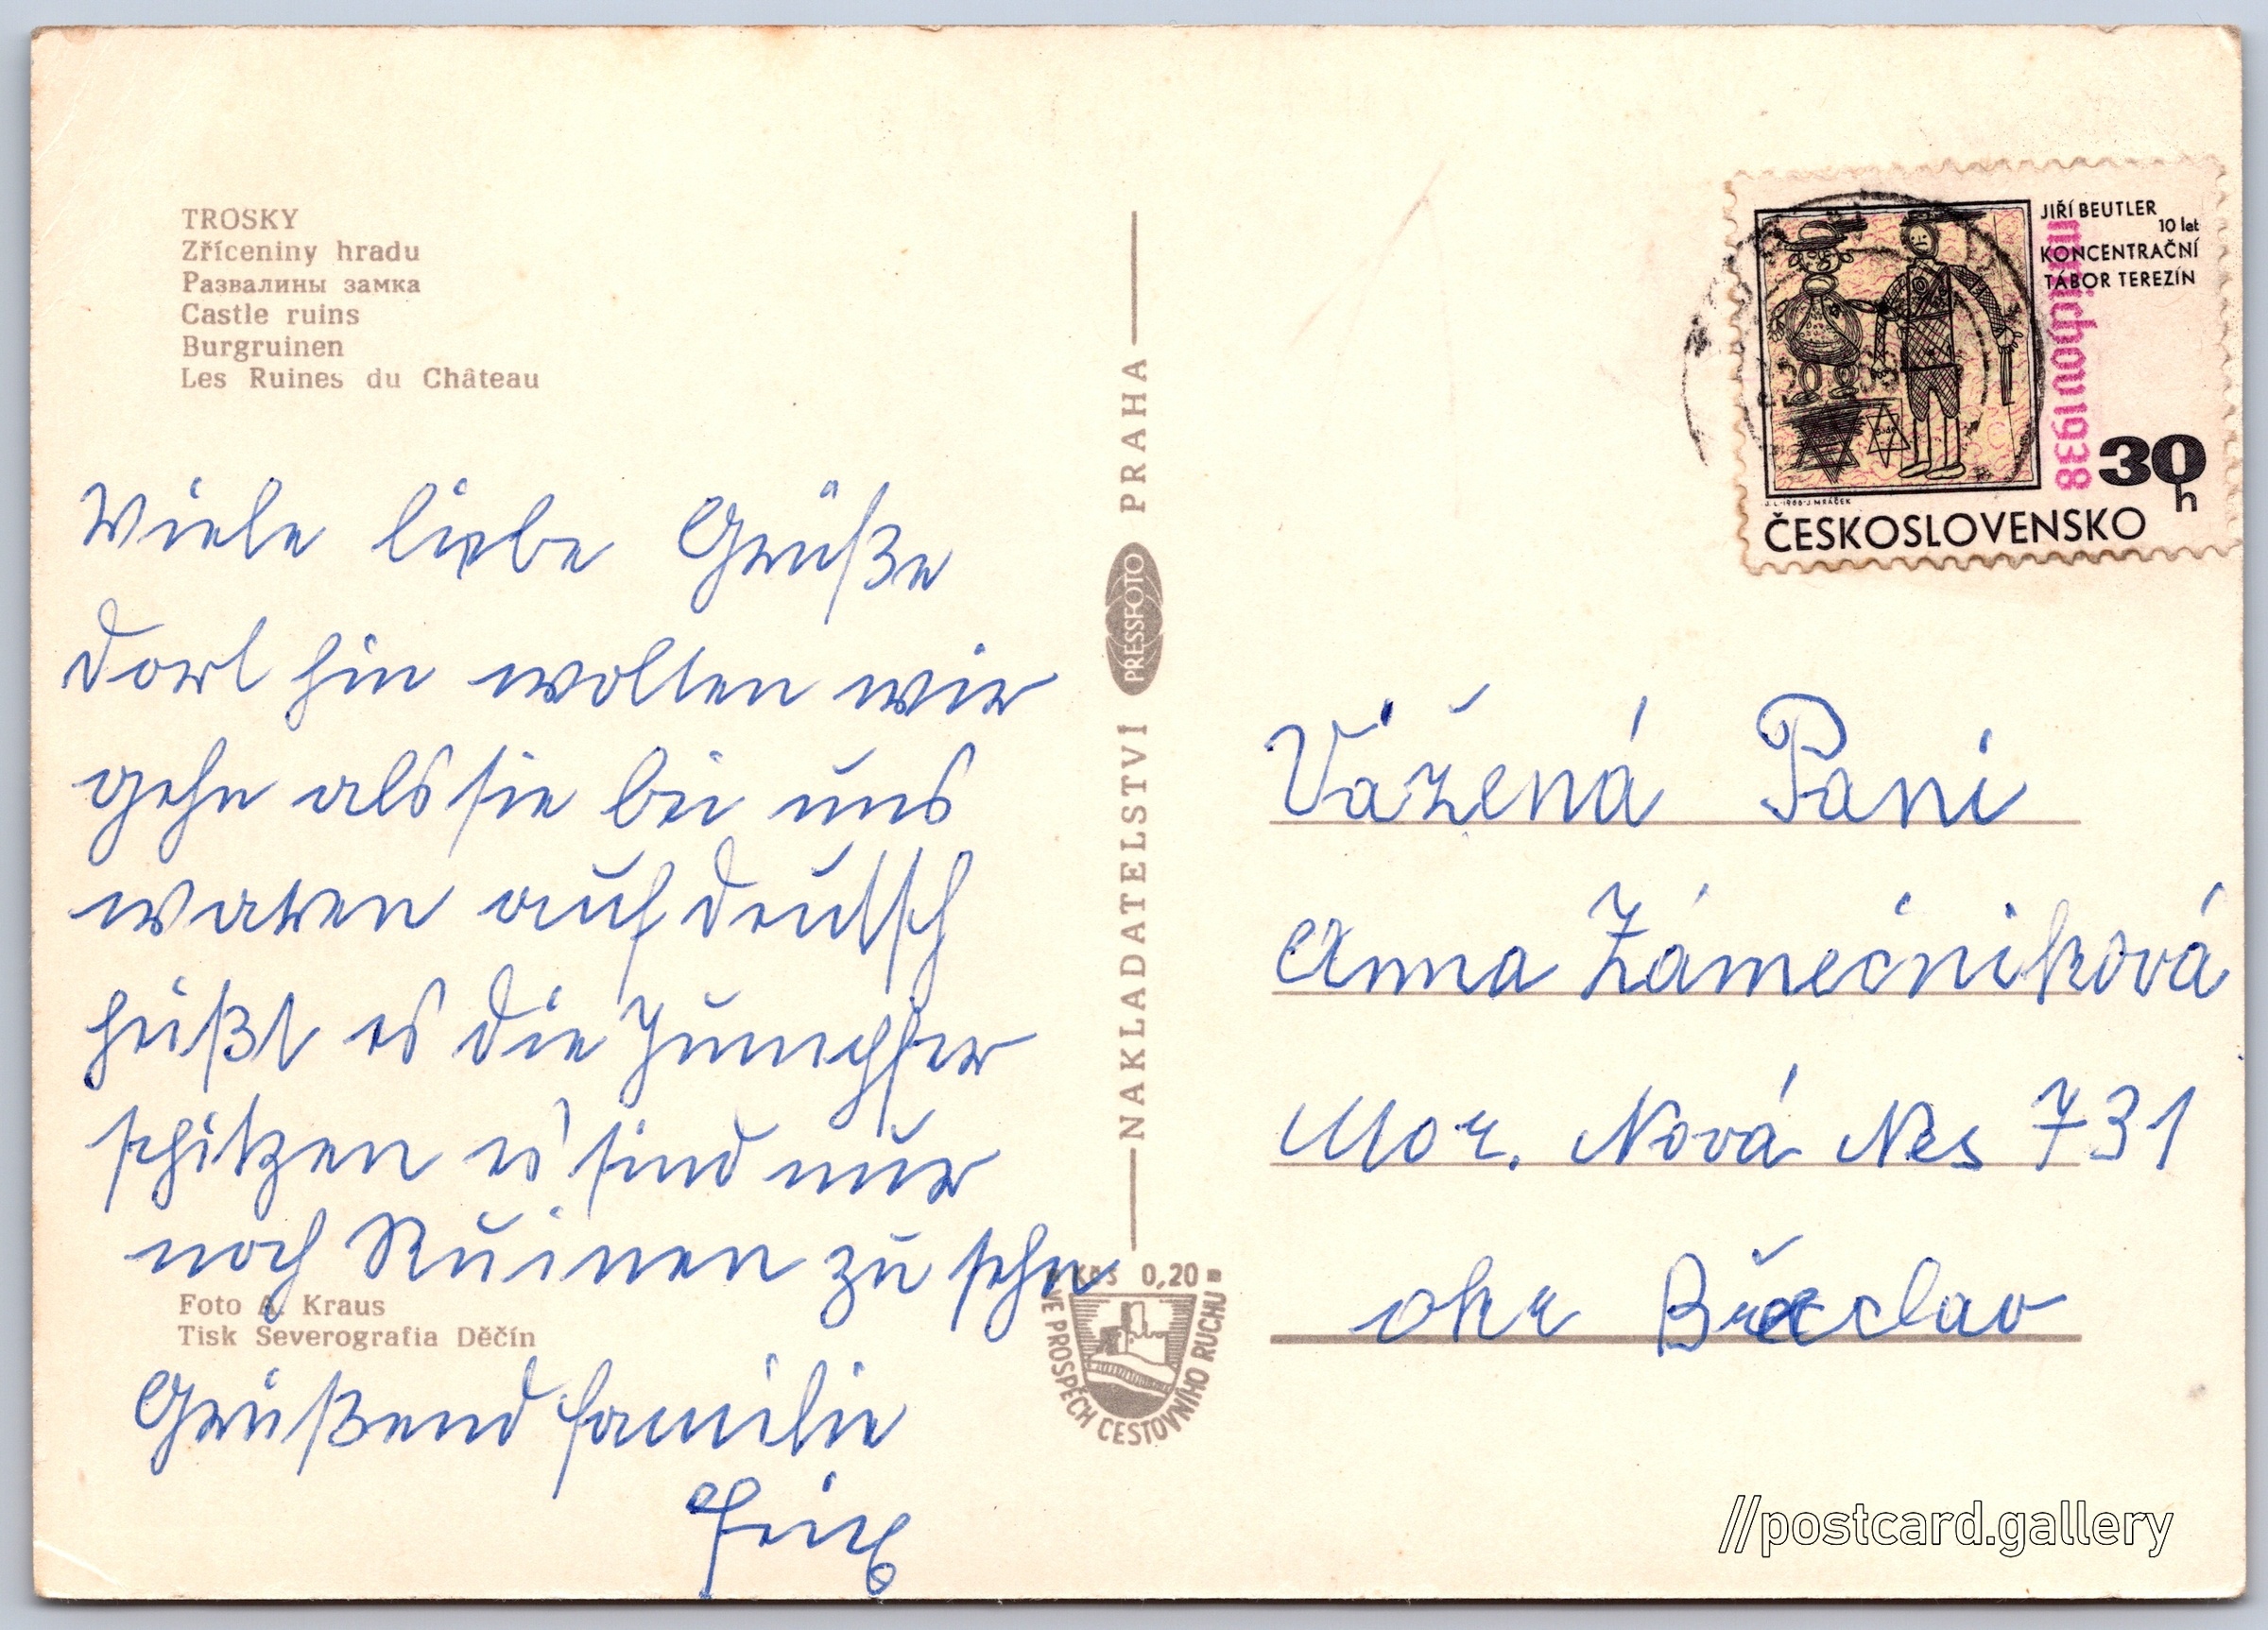 TROSKY
Zříceniny hradu
Развалины замка
Castle ruins
Burgruinen
Les Ruines du Château
Viele liebe Grüße
dort hin wollten wir
gehn als sie bei uns
waren auf deutsch
heißt es die Jumpfer
schitzen es sind nur
noch Ruinen zu sehn
Foto A. Kraus
Tisk Severografia Děčín
Grüßend familie
NAKLADATELSTVÍ PRESSFOTO PRAHA
Kčs 0,20
VE PROSPĚCH CESTOVNÍHO RUCHU
JIŘÍ BEUTLER
10 let
KONCENTRAČNÍ
TÁBOR TEREZÍN
mnichov 1938
30 h
J.L.-1968-J.MRÁČEK
ČESKOSLOVENSKO
Vážená Pani
Anna Zámečniková
Mor. Nová Nes 731
okr Břeclav
//postcard.gallery